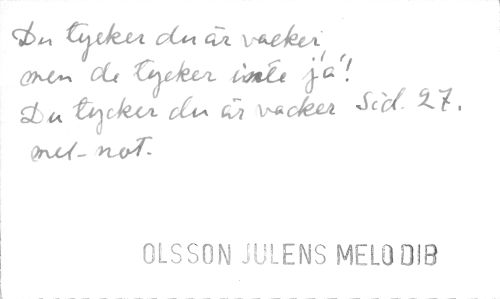 Du tycker du är vacker,
men de tycker inte ja'!
Du tycker du är vacker Sid. 27.
mel-not.
OLSSON JULENS MELODIB